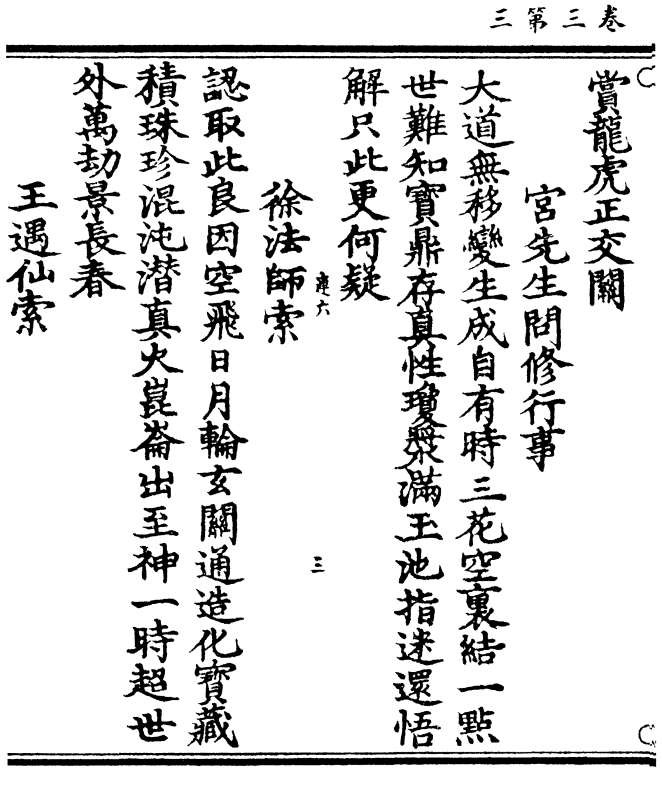 卷三第三
賞龍虎正交關
宮先生問修行事
大道無移變生成自有時三花空裏結一點
世難知寶鼎存真性瓊漿滿玉池指迷還悟
解只此更何疑
三
徐法師索
認取此良因空飛日月輪玄關通造化寶藏
積珠珍混沌潜真火崑崙出至神一時超世
外萬劫景長春
王遇仙索